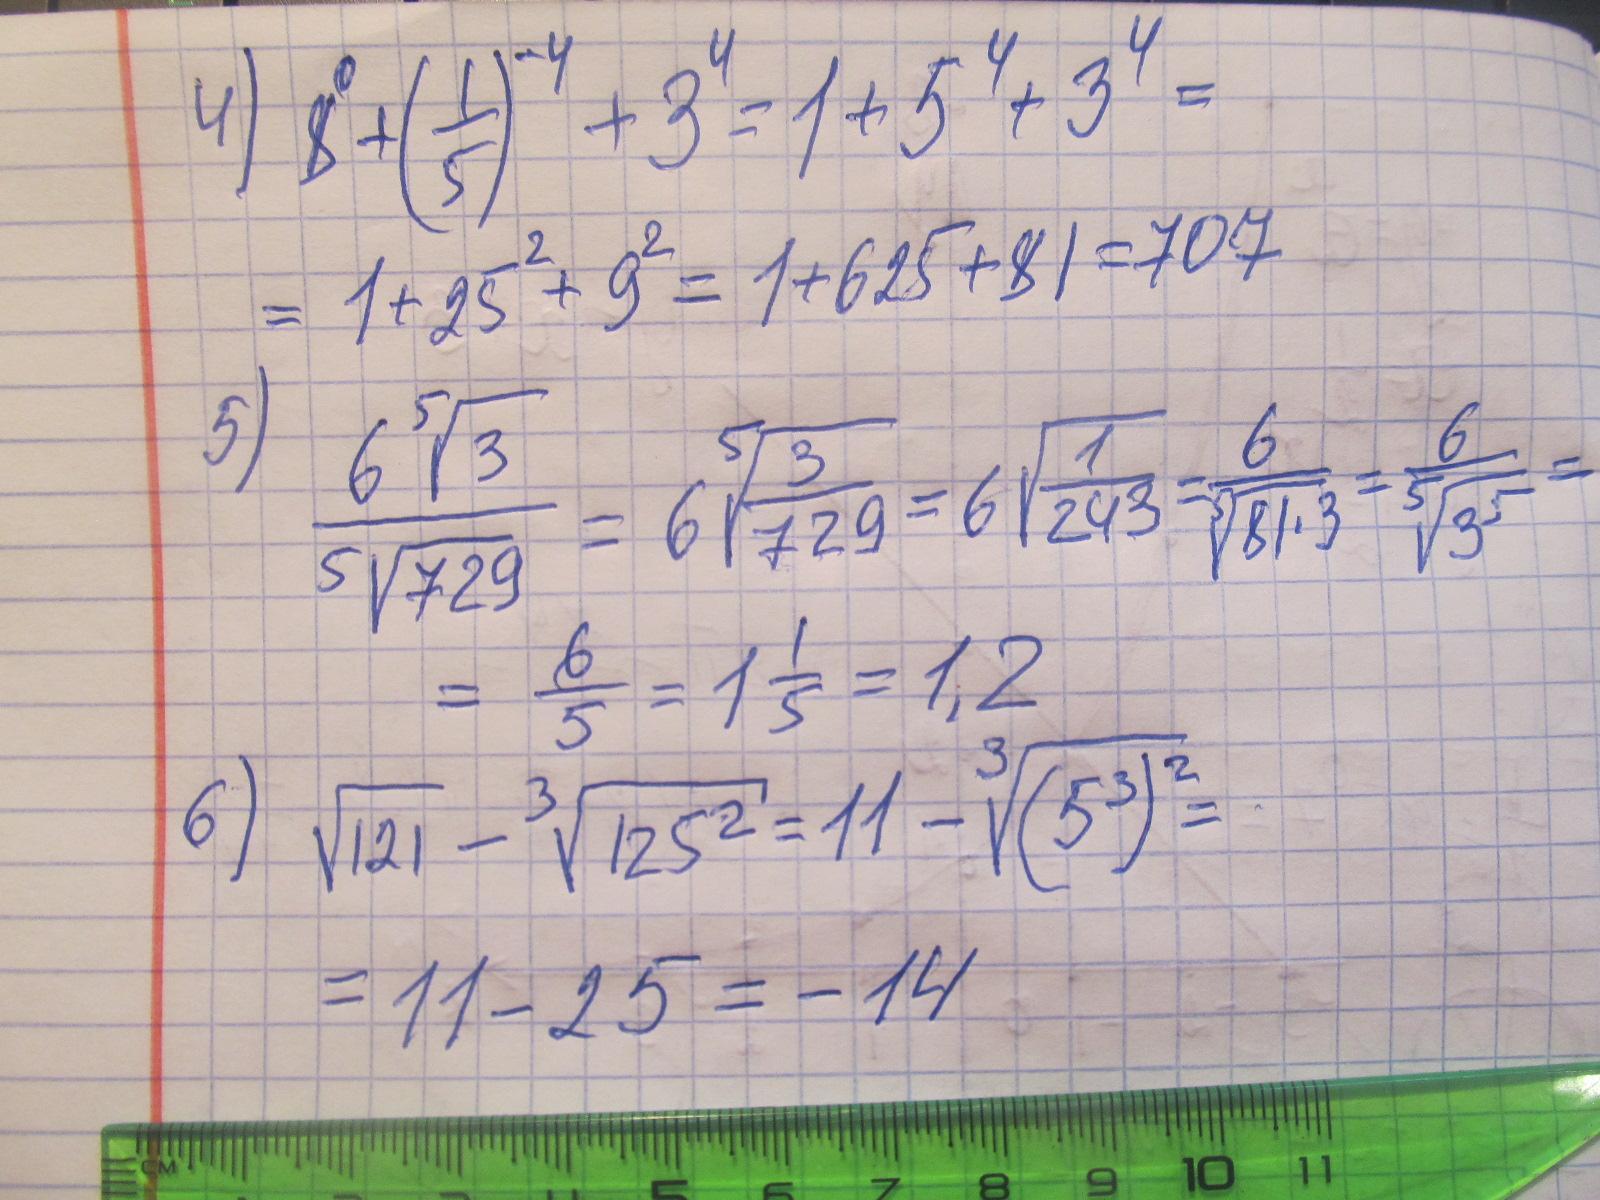 4) 8⁰ + (1/5)⁻⁴ + 3⁴ = 1 + 5⁴ + 3⁴ =
= 1 + 25² + 9² = 1 + 625 + 81 = 707
5) 6 ⁵√3 / ⁵√729 = 6 ⁵√(3/729) = 6 √(1/243) = 6/⁵√(81·3) = 6/⁵√(3⁵) =
= 6/5 = 1 1/5 = 1,2
6) √121 - ³√(125²) = 11 - ³√((5³)²) =
= 11 - 25 = -14
СМ 1 2 3 4 5 6 7 8 9 10 11